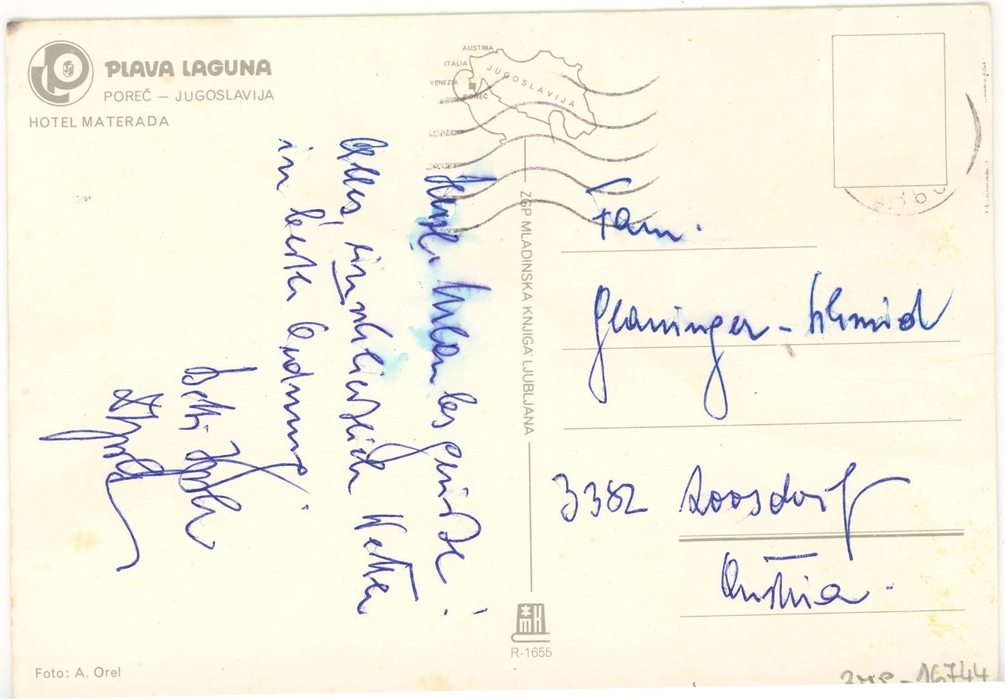 PLAVA LAGUNA
POREČ – JUGOSLAVIJA
HOTEL MATERADA
AUSTRIA
ITALIA
JUGOSLAVIJA
VENEZIA
POREČ
Urlaubsgrüße!
Alles, einschließlich Wetter
in bester Ordnung.
ZGP MLADINSKA KNJIGA LJUBLJANA
Fam.
Glaninger - Schmid
3382 Loosdorf
Austria.
R-1655
Foto: A. Orel